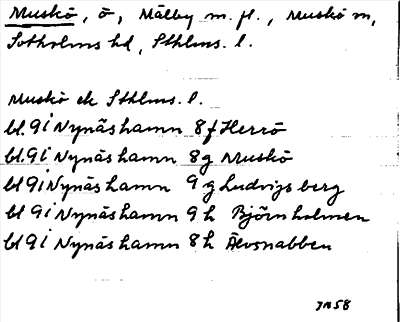 Muskö, ö, Mälby m. fl., Muskö sn,
Sotholms hd, Sthlms. l.
Muskö ek Sthlms. l.
bl. 9 i Nynäshamn 8 f Herrö
bl. 9 i Nynäshamn 8 g Muskö
bl 9 i Nynäshamn 9 g Ludvigsberg
bl 9 i Nynäshamn 9 h Björnholmen
bl 9 i Nynäshamn 8 h Älvsnabben
JN 58